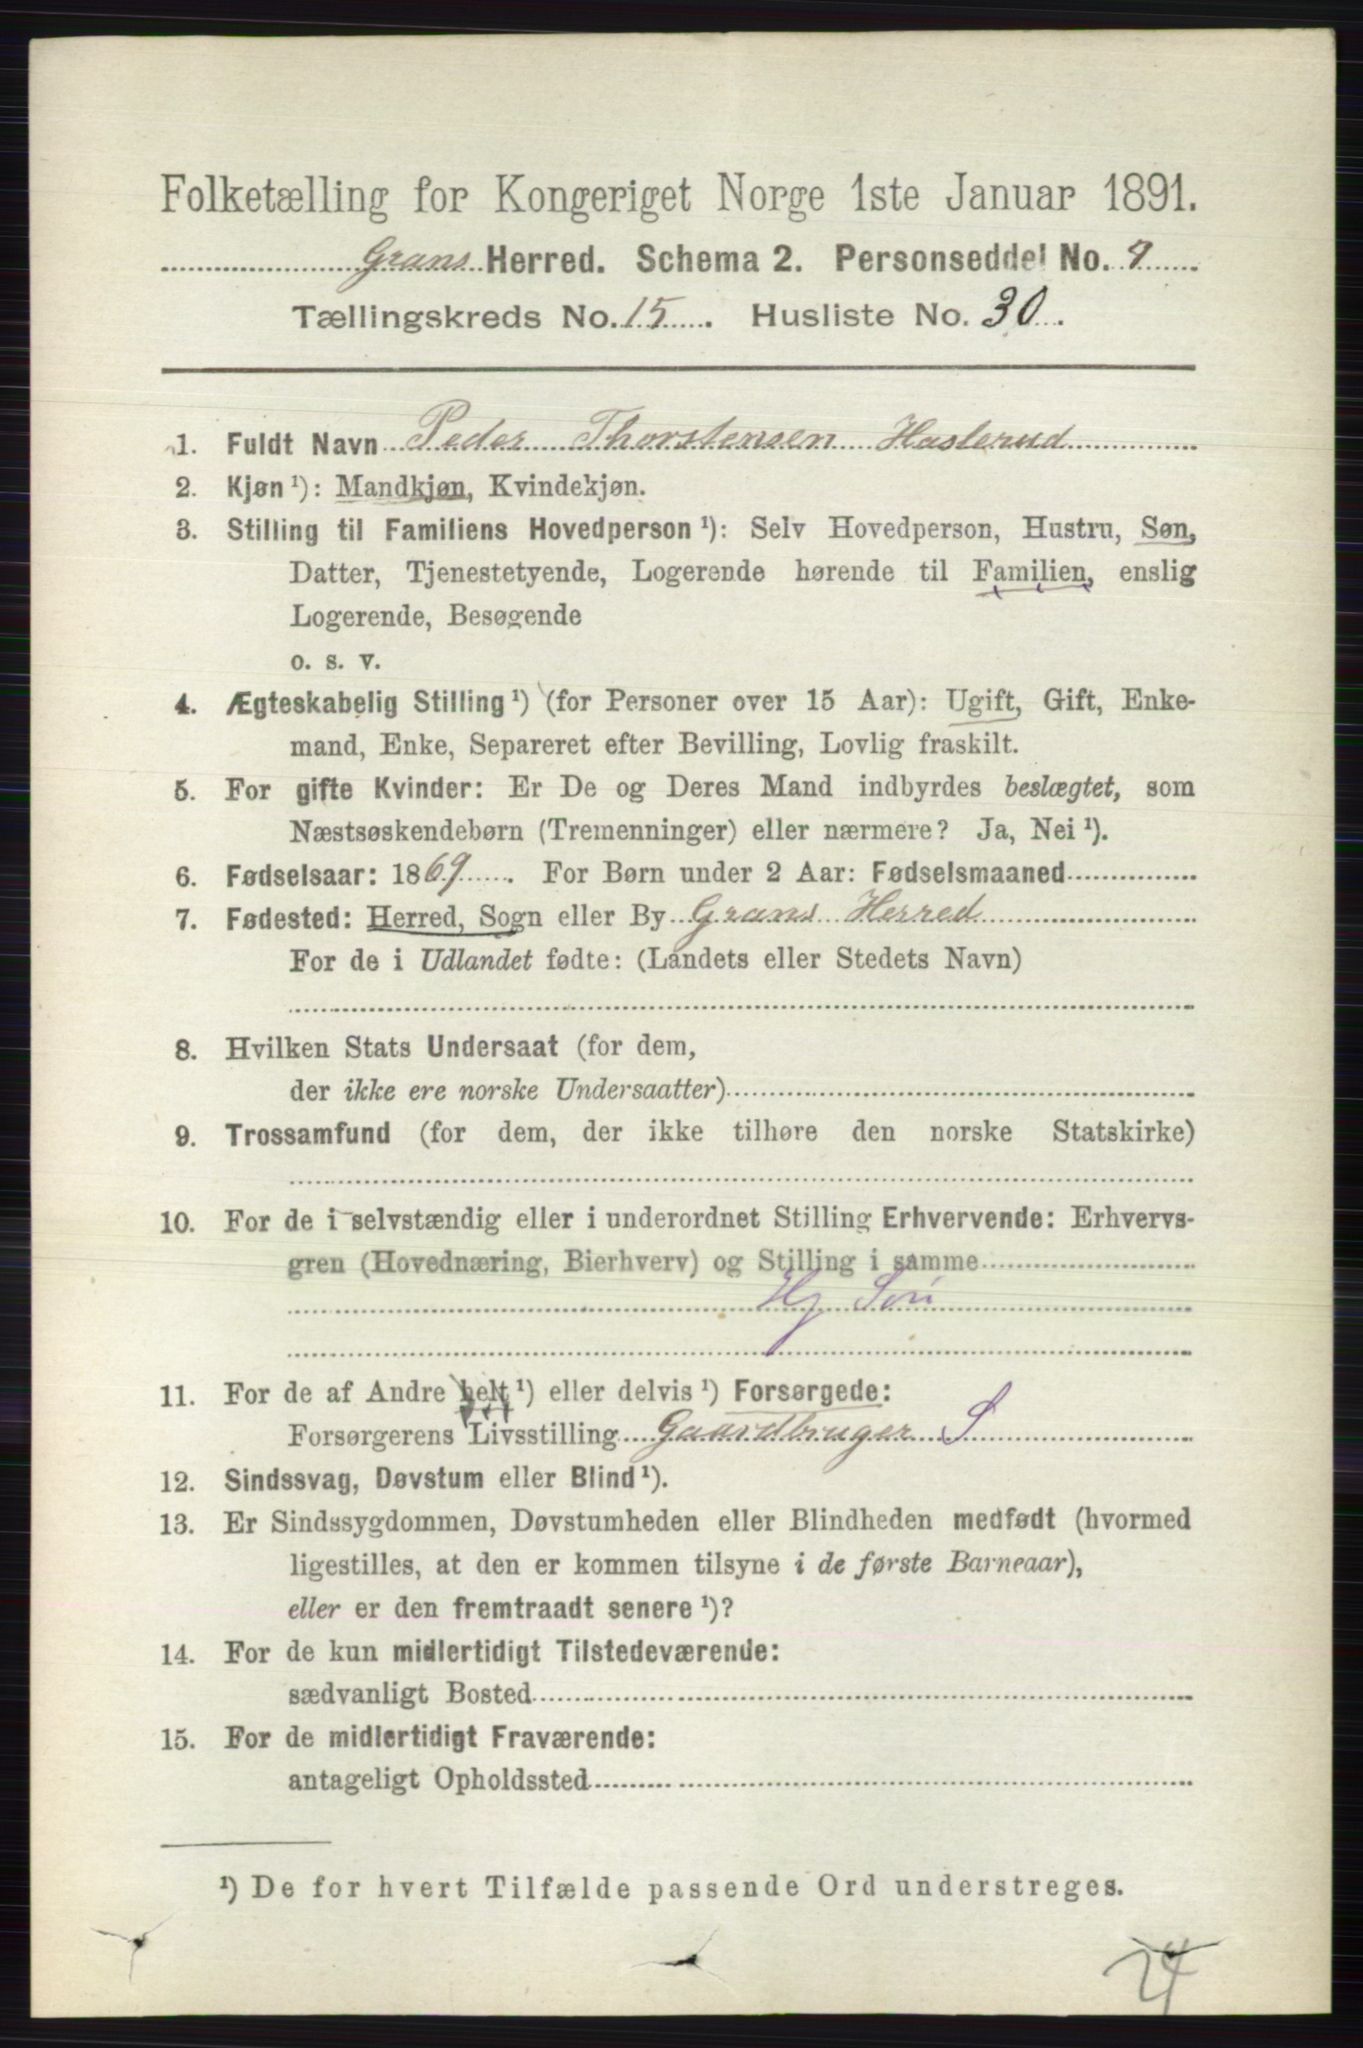 Folketælling for Kongeriget Norge 1ste Januar 1891.
Grans Herred. Schema 2. Personseddel No.
Tællingskreds No. 15. Husliste No. 30.
1. Fuldt Navn Peder Thorstensen Haslerud
2. Kjøn ¹): Mandkjøn, Kvindekjøn.
3. Stilling til Familiens Hovedperson ¹): Selv Hovedperson, Hustru, Søn,
Datter, Tjenestetyende, Logerende hørende til Familien, enslig
Logerende, Besøgende
o. s. v.
4. Ægteskabelig Stilling ¹) (for Personer over 15 Aar): Ugift, Gift, Enke-
mand, Enke, Separeret efter Bevilling, Lovlig fraskilt.
5. For gifte Kvinder: Er De og Deres Mand indbyrdes beslægtet, som
Næstsøskendebørn (Tremenninger) eller nærmere? Ja, Nei ¹).
6. Fødselsaar: 1869. For Børn under 2 Aar: Fødselsmaaned
7. Fødested: Herred, Sogn eller By Grans Herred
For de i Udlandet fødte: (Landets eller Stedets Navn)
8. Hvilken Stats Undersaat (for dem,
der ikke ere norske Undersaatter)
9. Trossamfund (for dem, der ikke tilhøre den norske Statskirke)
10. For de i selvstændig eller i underordnet Stilling Erhvervende: Erhvervs-
gren (Hovednæring, Bierhverv) og Stilling i samme
Hj Søn
11. For de af Andre helt ¹) eller delvis ¹) Forsørgede:
Forsørgerens Livsstilling Gaardbruger S
12. Sindssvag, Døvstum eller Blind ¹).
13. Er Sindssygdommen, Døvstumheden eller Blindheden medfødt (hvormed
ligestilles, at den er kommen tilsyne i de første Barneaar),
eller er den fremtraadt senere ¹)?
14. For de kun midlertidigt Tilstedeværende:
sædvanligt Bosted
15. For de midlertidigt Fraværende:
antageligt Opholdssted
¹) De for hvert Tilfælde passende Ord understreges.
24